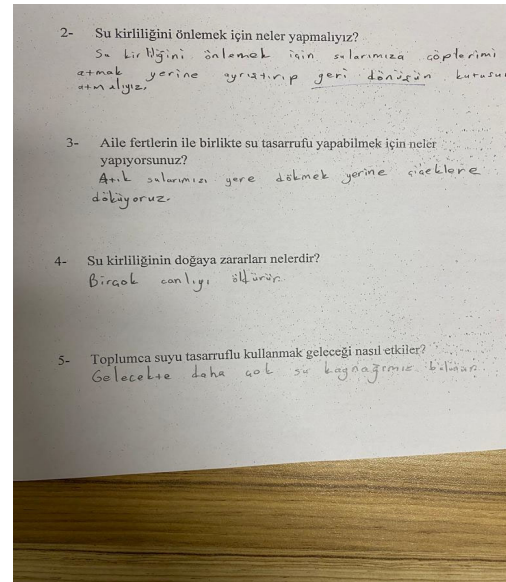 2- Su kirliliğini önlemek için neler yapmalıyız?
Su kirliliğini önlemek için sularımıza çöplerimi
atmak yerine ayrıştırıp geri dönüşün kutusu
atmalıyız.
3- Aile fertlerin ile birlikte su tasarrufu yapabilmek için neler
yapıyorsunuz?
Atık sularımızı yere dökmek yerine çiçeklere
döküyoruz.
4- Su kirliliğinin doğaya zararları nelerdir?
Birçok canlıyı öldürür.
5- Toplumca suyu tasarruflu kullanmak geleceği nasıl etkiler?
Gelecekte daha çok su kaynağımız bulunur.